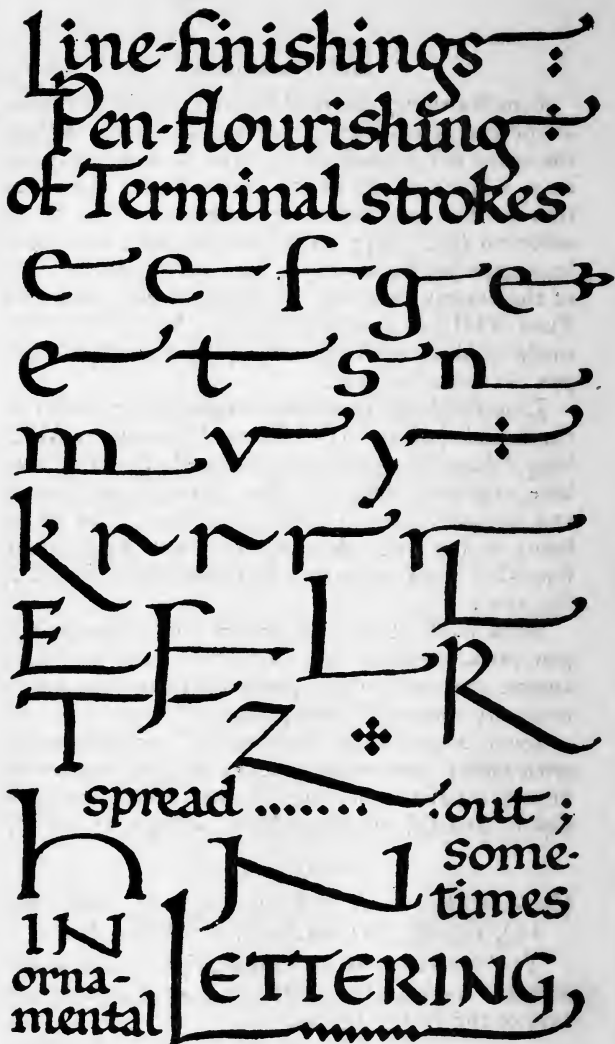 Line-finishings
Pen-flourishing
of Terminal strokes
e e f g e
e t s n
m v y
k r r r r L
E F L R
T Z
spread ....... out ;
h N some-
times
IN
orna-
mental LETTERING,